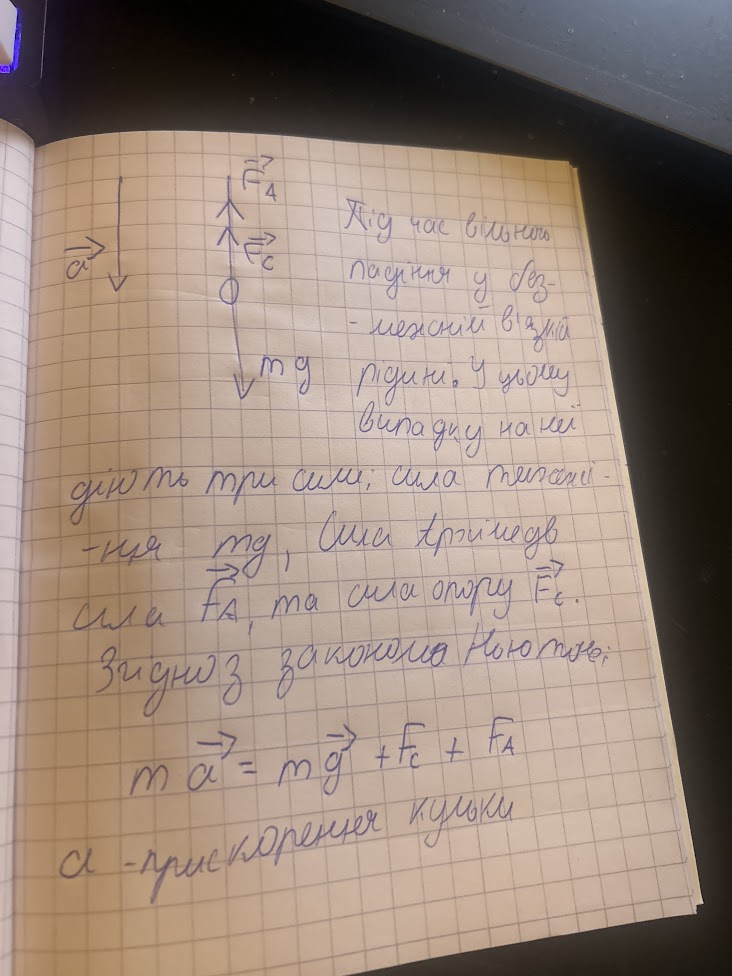 F_A
F_c
a
mg
Під час вільного
падіння у без-
- межній в'язкій
рідині. У цьому
випадку на неї
діють три сили; сила тяжі-
-ння mg, Сила Архімедв
сила F_A, та сила опору F_c.
Згідно з законома Ньютона:
m a = m g + F_c + F_A
a - прискорення кульки